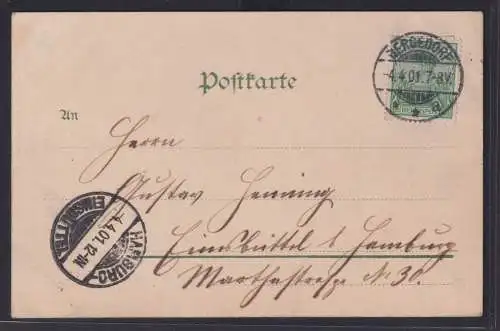 BERGEDORF
4.4.01.7-8V.
* * a
Postkarte
An
Herrn
Gustav Henning
Eimsbüttel b Hamburg
Marthastraße No 30.
HAMBURG
4.4.01.12-1N
EIMSBÜTTEL